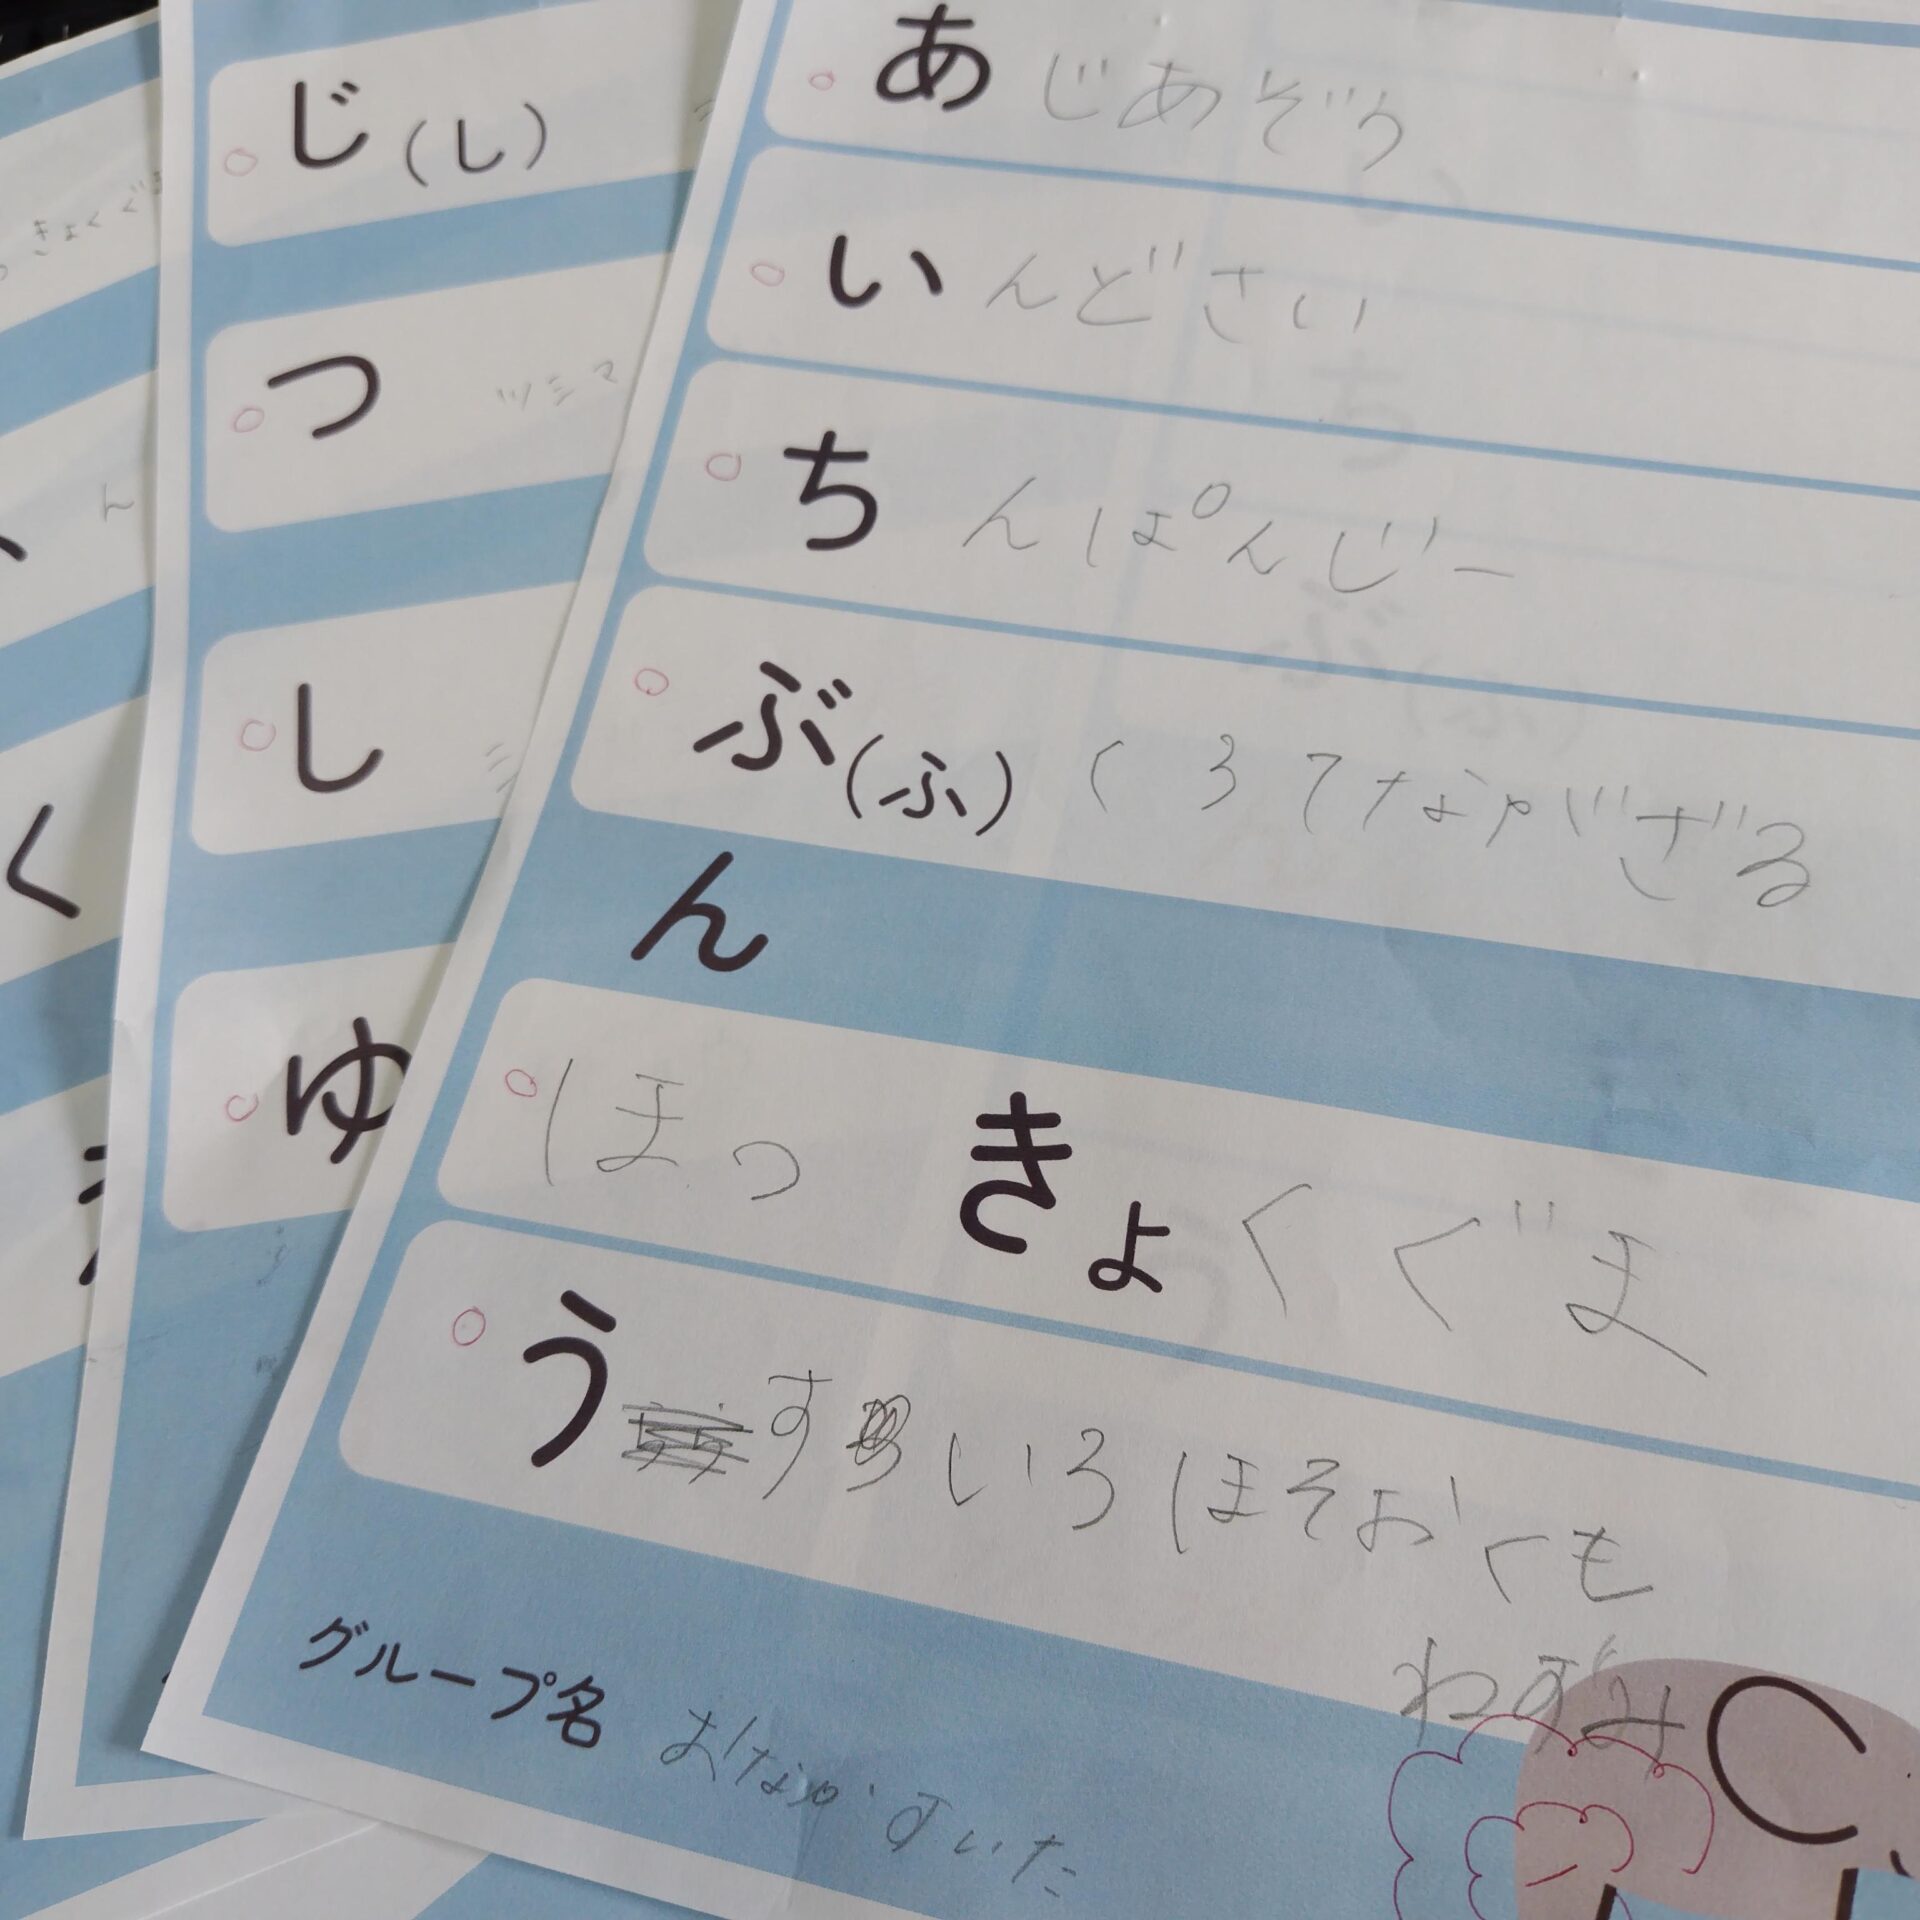 あじあぞう
いんどさい
ちんぱんじー
ぶ(ふ)くろてながざる
ん
ほっきょくぐま
うすいろほそおくも
ねずみ
グループ名 おなかすいた
じ(し)
つ ツシマ
し
ゆ
きょくぐま
ん
く